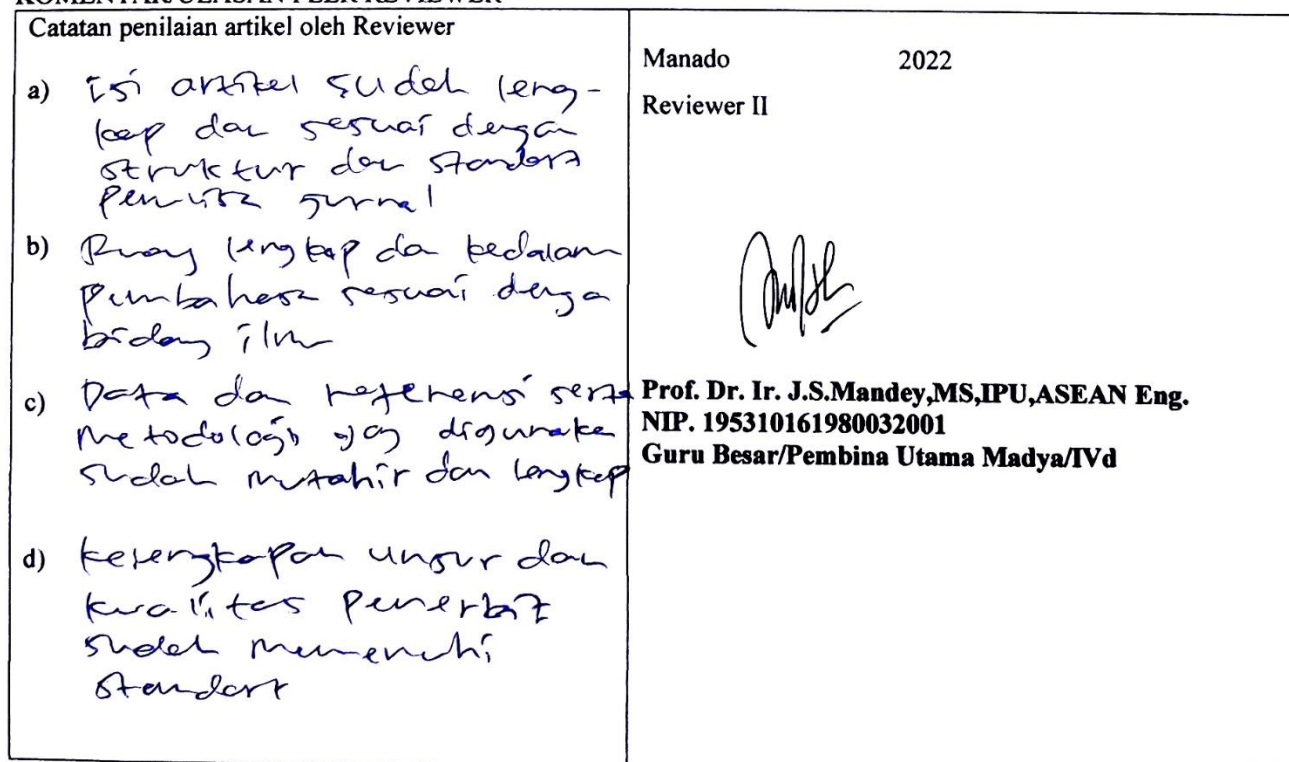 KOMENTAR/ULASAN PEER REVIEWER
Catatan penilaian artikel oleh Reviewer
a) Isi artikel sudah leng-
kap dan sesuai dengan
struktur dan standart
penulisan jurnal
b) Ruang lengkap dan kedalaman
pembahasan sesuai dengan
bidang ilmu
c) Data dan referensi serta
metodologi yang digunakan
sudah mutahir dan lengkap
d) kelengkapan unsur dan
kualitas penerbit
sudah memenuhi
standart
Manado 2022
Reviewer II
Prof. Dr. Ir. J.S.Mandey,MS,IPU,ASEAN Eng.
NIP. 195310161980032001
Guru Besar/Pembina Utama Madya/IVd